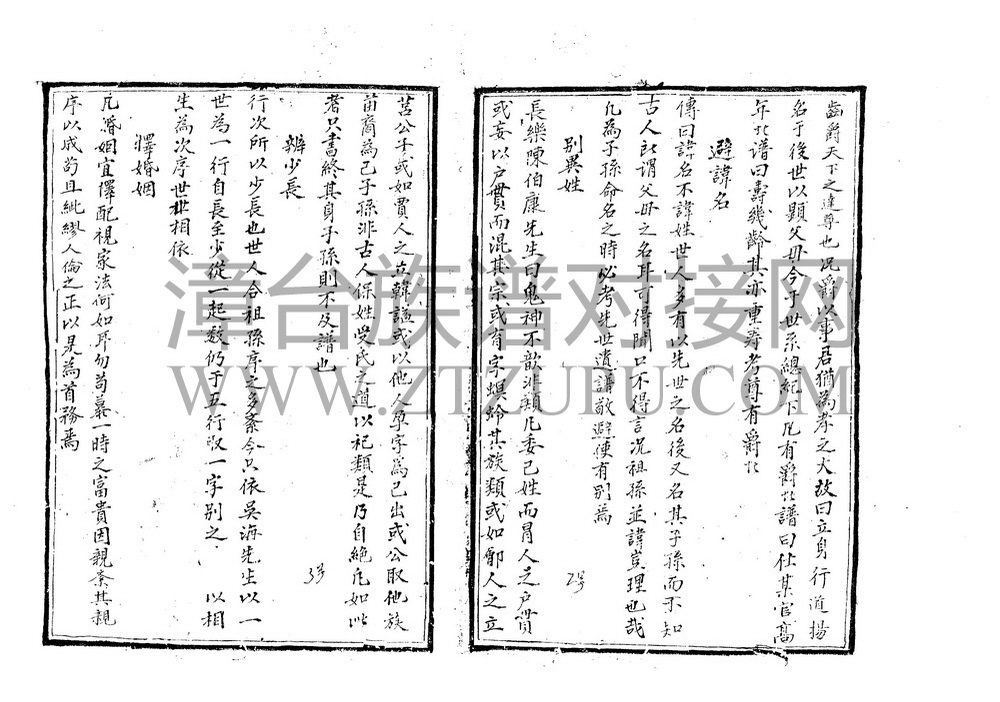 齒爵天下之達尊也況爵以事君猶為孝之大故曰立身行道揚
名于後世以顯父母今于世系總紀下凡有爵北譜曰仕某官高
年北譜曰壽幾齡其亦重壽考尊有爵北
避諱名
傳曰諱名不諱姓世人多有以先世之名後又名其子孫而不知
古人所謂父母之名耳可得聞口不得言况祖孫並諱豈理也哉
凡為子孫命名之時必考先世遺譜敬避便有別焉
別異姓
長樂陳伯康先生曰鬼神不歆非類凡委己姓而冒人之户貫
或妄以户貫而混其宗或有字螟蛉其族類或如鄫人之立
2号
莒公子或如賈人之立韓謐或以他人孕字為己出或公取他族
苗裔為己子孫非古人保姓受氏之道以祀類是乃自絶凡如此
者只書終其身子孫則不及譜也
辨少長
行次所以少長也世人合祖孫序之多紊今只依吳海先生以一
世為一行自長至少從一起数仍于五行取一字別之 以相
生為次序世世相依
擇婚姻
凡婚姻宜擇配視家法何如耳勿苟慕一時之富貴因親紊其親
序以成苟且紕繆人倫之正以是為首務焉
3号
漳台族谱对接网
WWW.ZTZUPU.COM